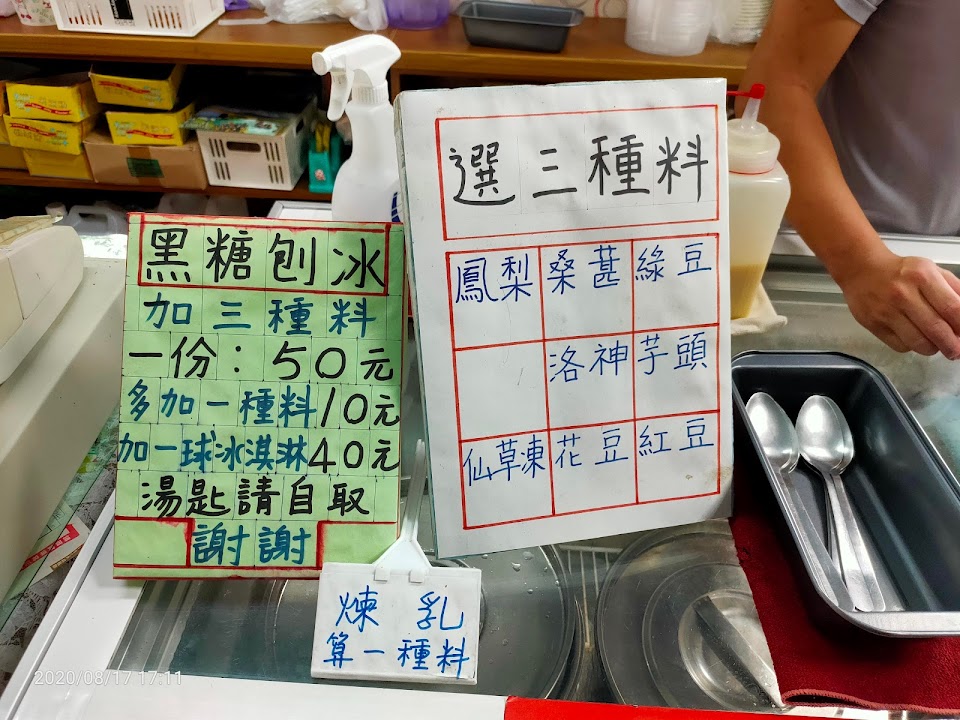 黑糖刨冰
加三種料
一份：50元
多加一種料10元
加一球冰淇淋40元
湯匙請自取
謝謝
選三種料
鳳梨 桑葚 綠豆
洛神 芋頭
仙草凍 花豆 紅豆
煉乳
算一種料
2020/08/17 17:11